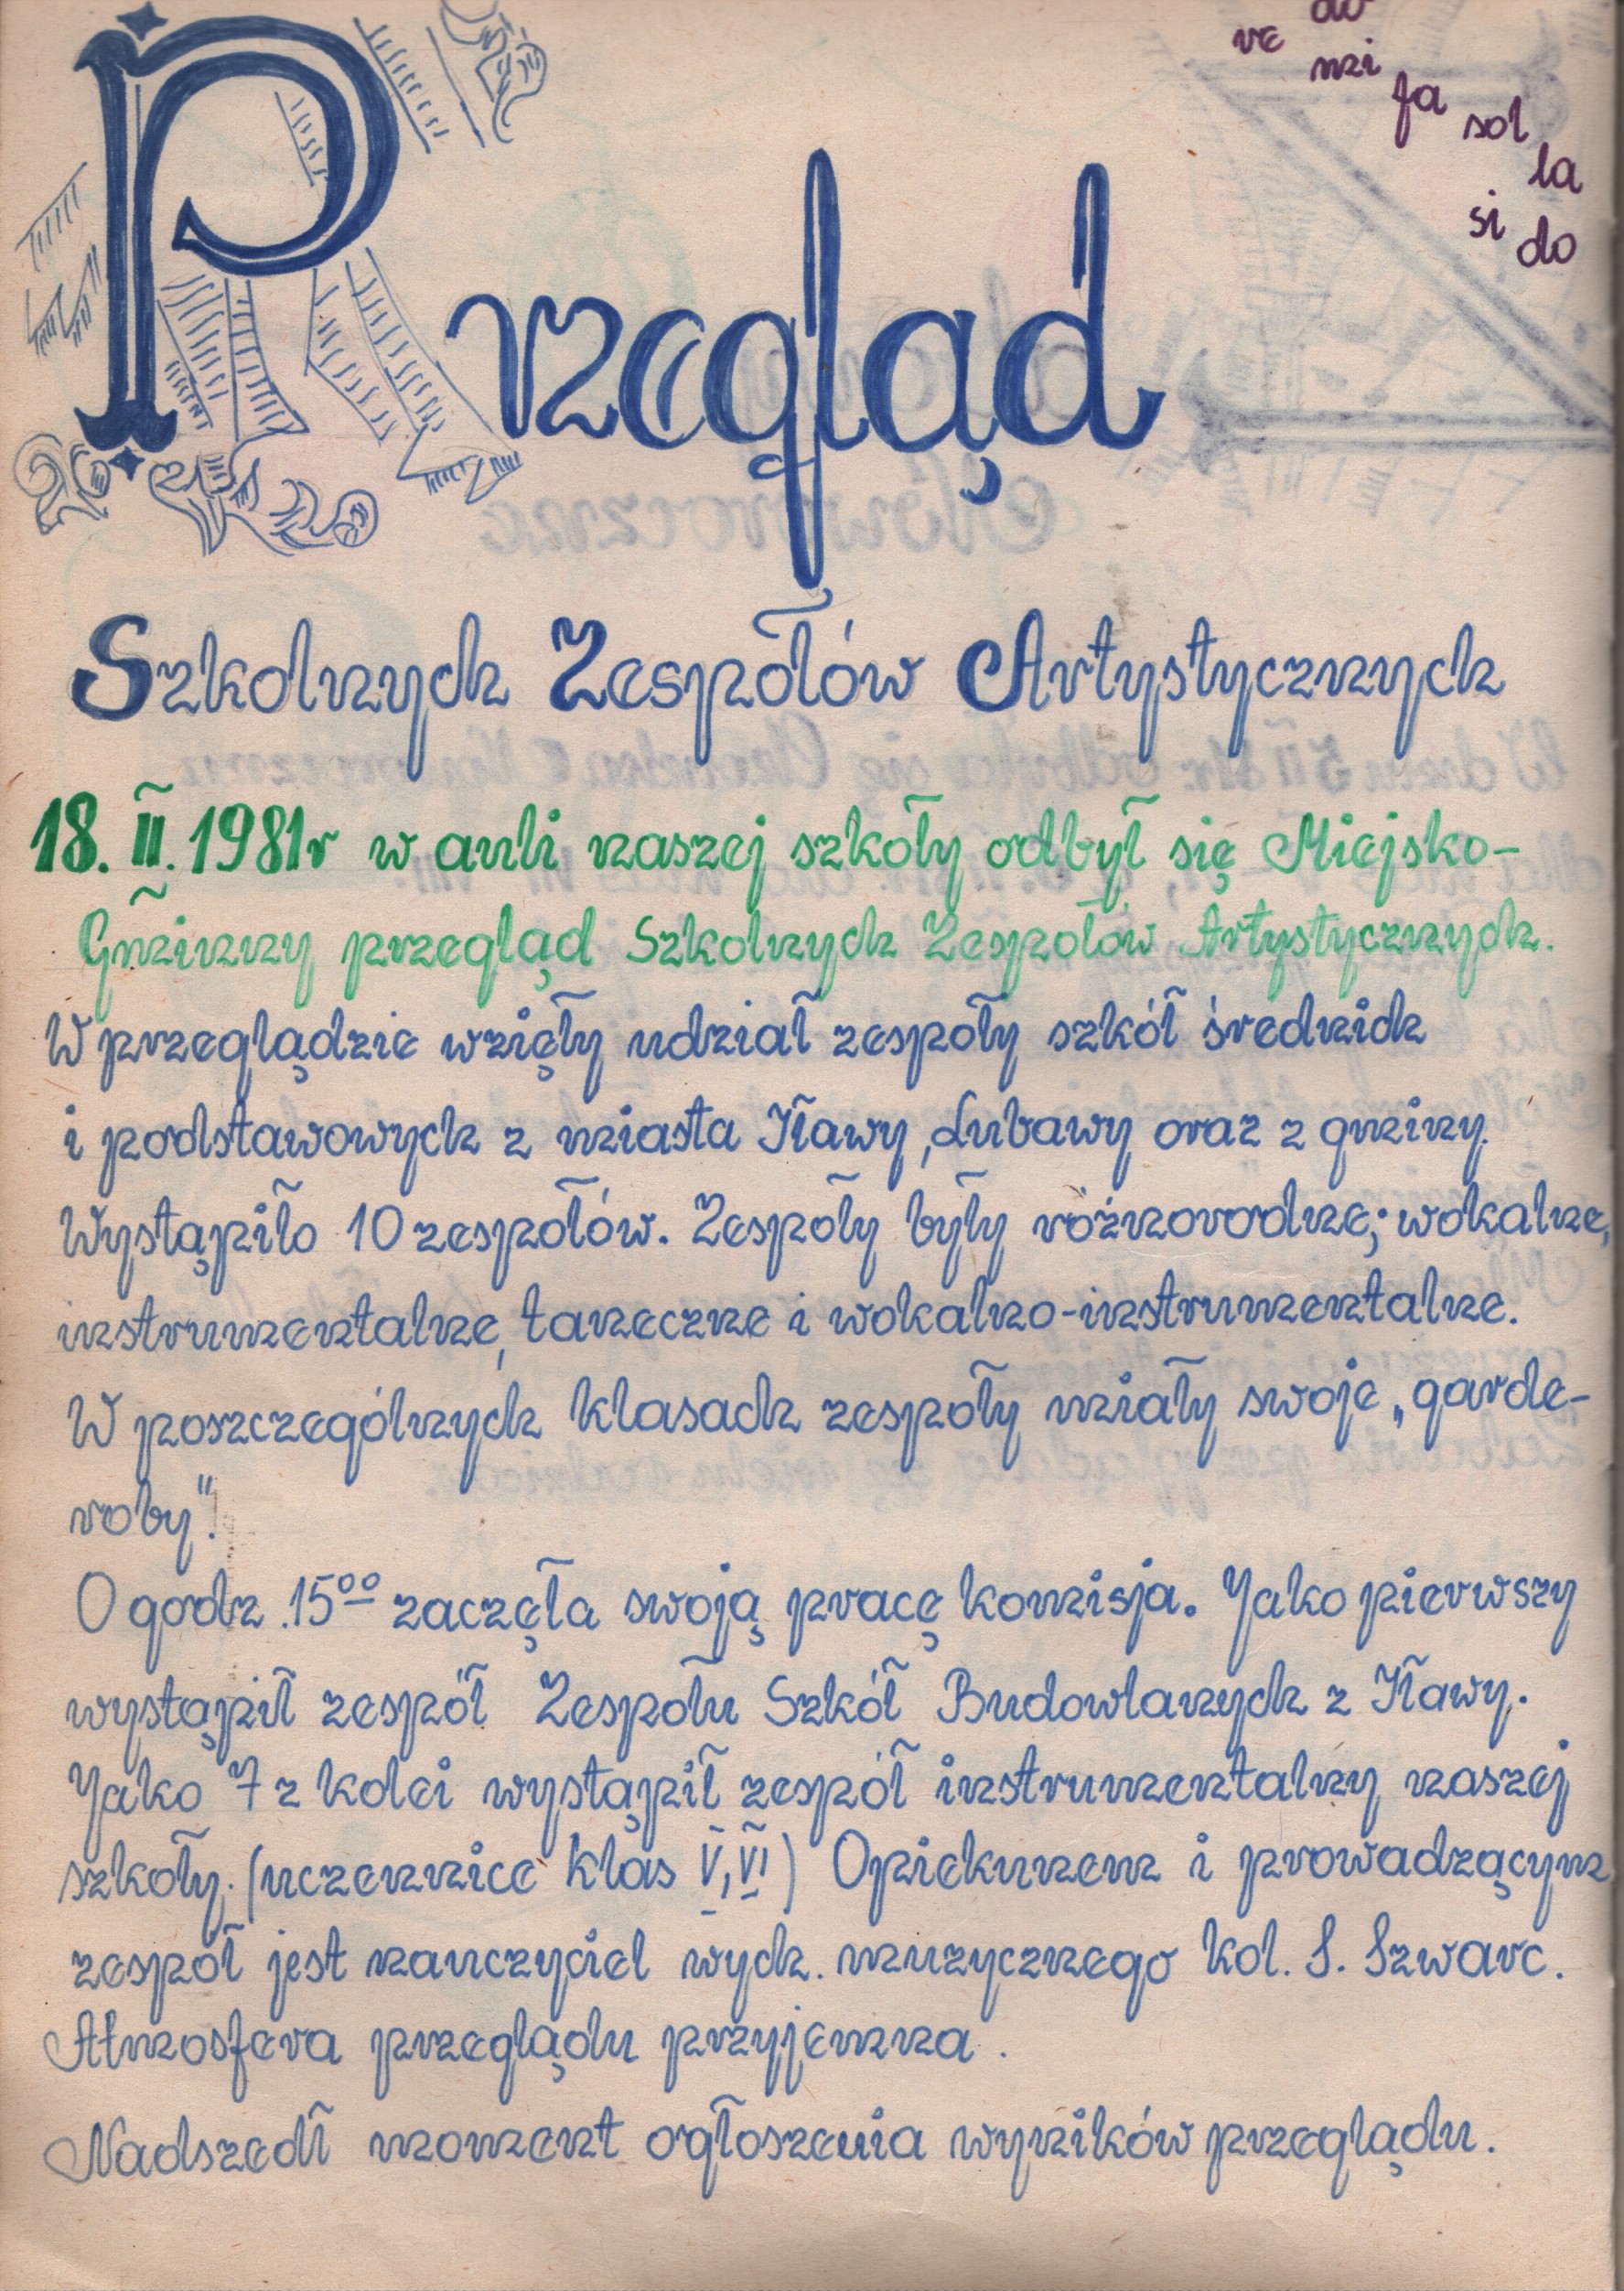 do
re
mi
fa
sol
la
si
do
Przegląd
Szkolnych Zespołów Artystycznych
18. II. 1981r w auli naszej szkoły odbył się Miejsko-
Gminny przegląd Szkolnych Zespołów Artystycznych.
W przeglądzie wzięły udział zespoły szkół średnich
i podstawowych z miasta Iławy, Lubawy oraz z gminy.
Wystąpiło 10 zespołów. Zespoły były różnorodne; wokalne,
instrumentalne, taneczne i wokalno-instrumentalne.
W poszczególnych klasach zespoły miały swoje „garde-
roby".
O godz. 15⁰⁰ zaczęła swoją pracę komisja. Jako pierwszy
wystąpił zespół Zespołu Szkół Budowlanych z Iławy.
Jako 7 z kolei wystąpił zespół instrumentalny naszej
szkoły. (uczennice klas V, VI) Opiekunem i prowadzącym
zespół jest nauczyciel wych. muzycznego kol. S. Szwarc.
Atmosfera przeglądu przyjemna.
Nadszedł moment ogłoszenia wyników przeglądu.